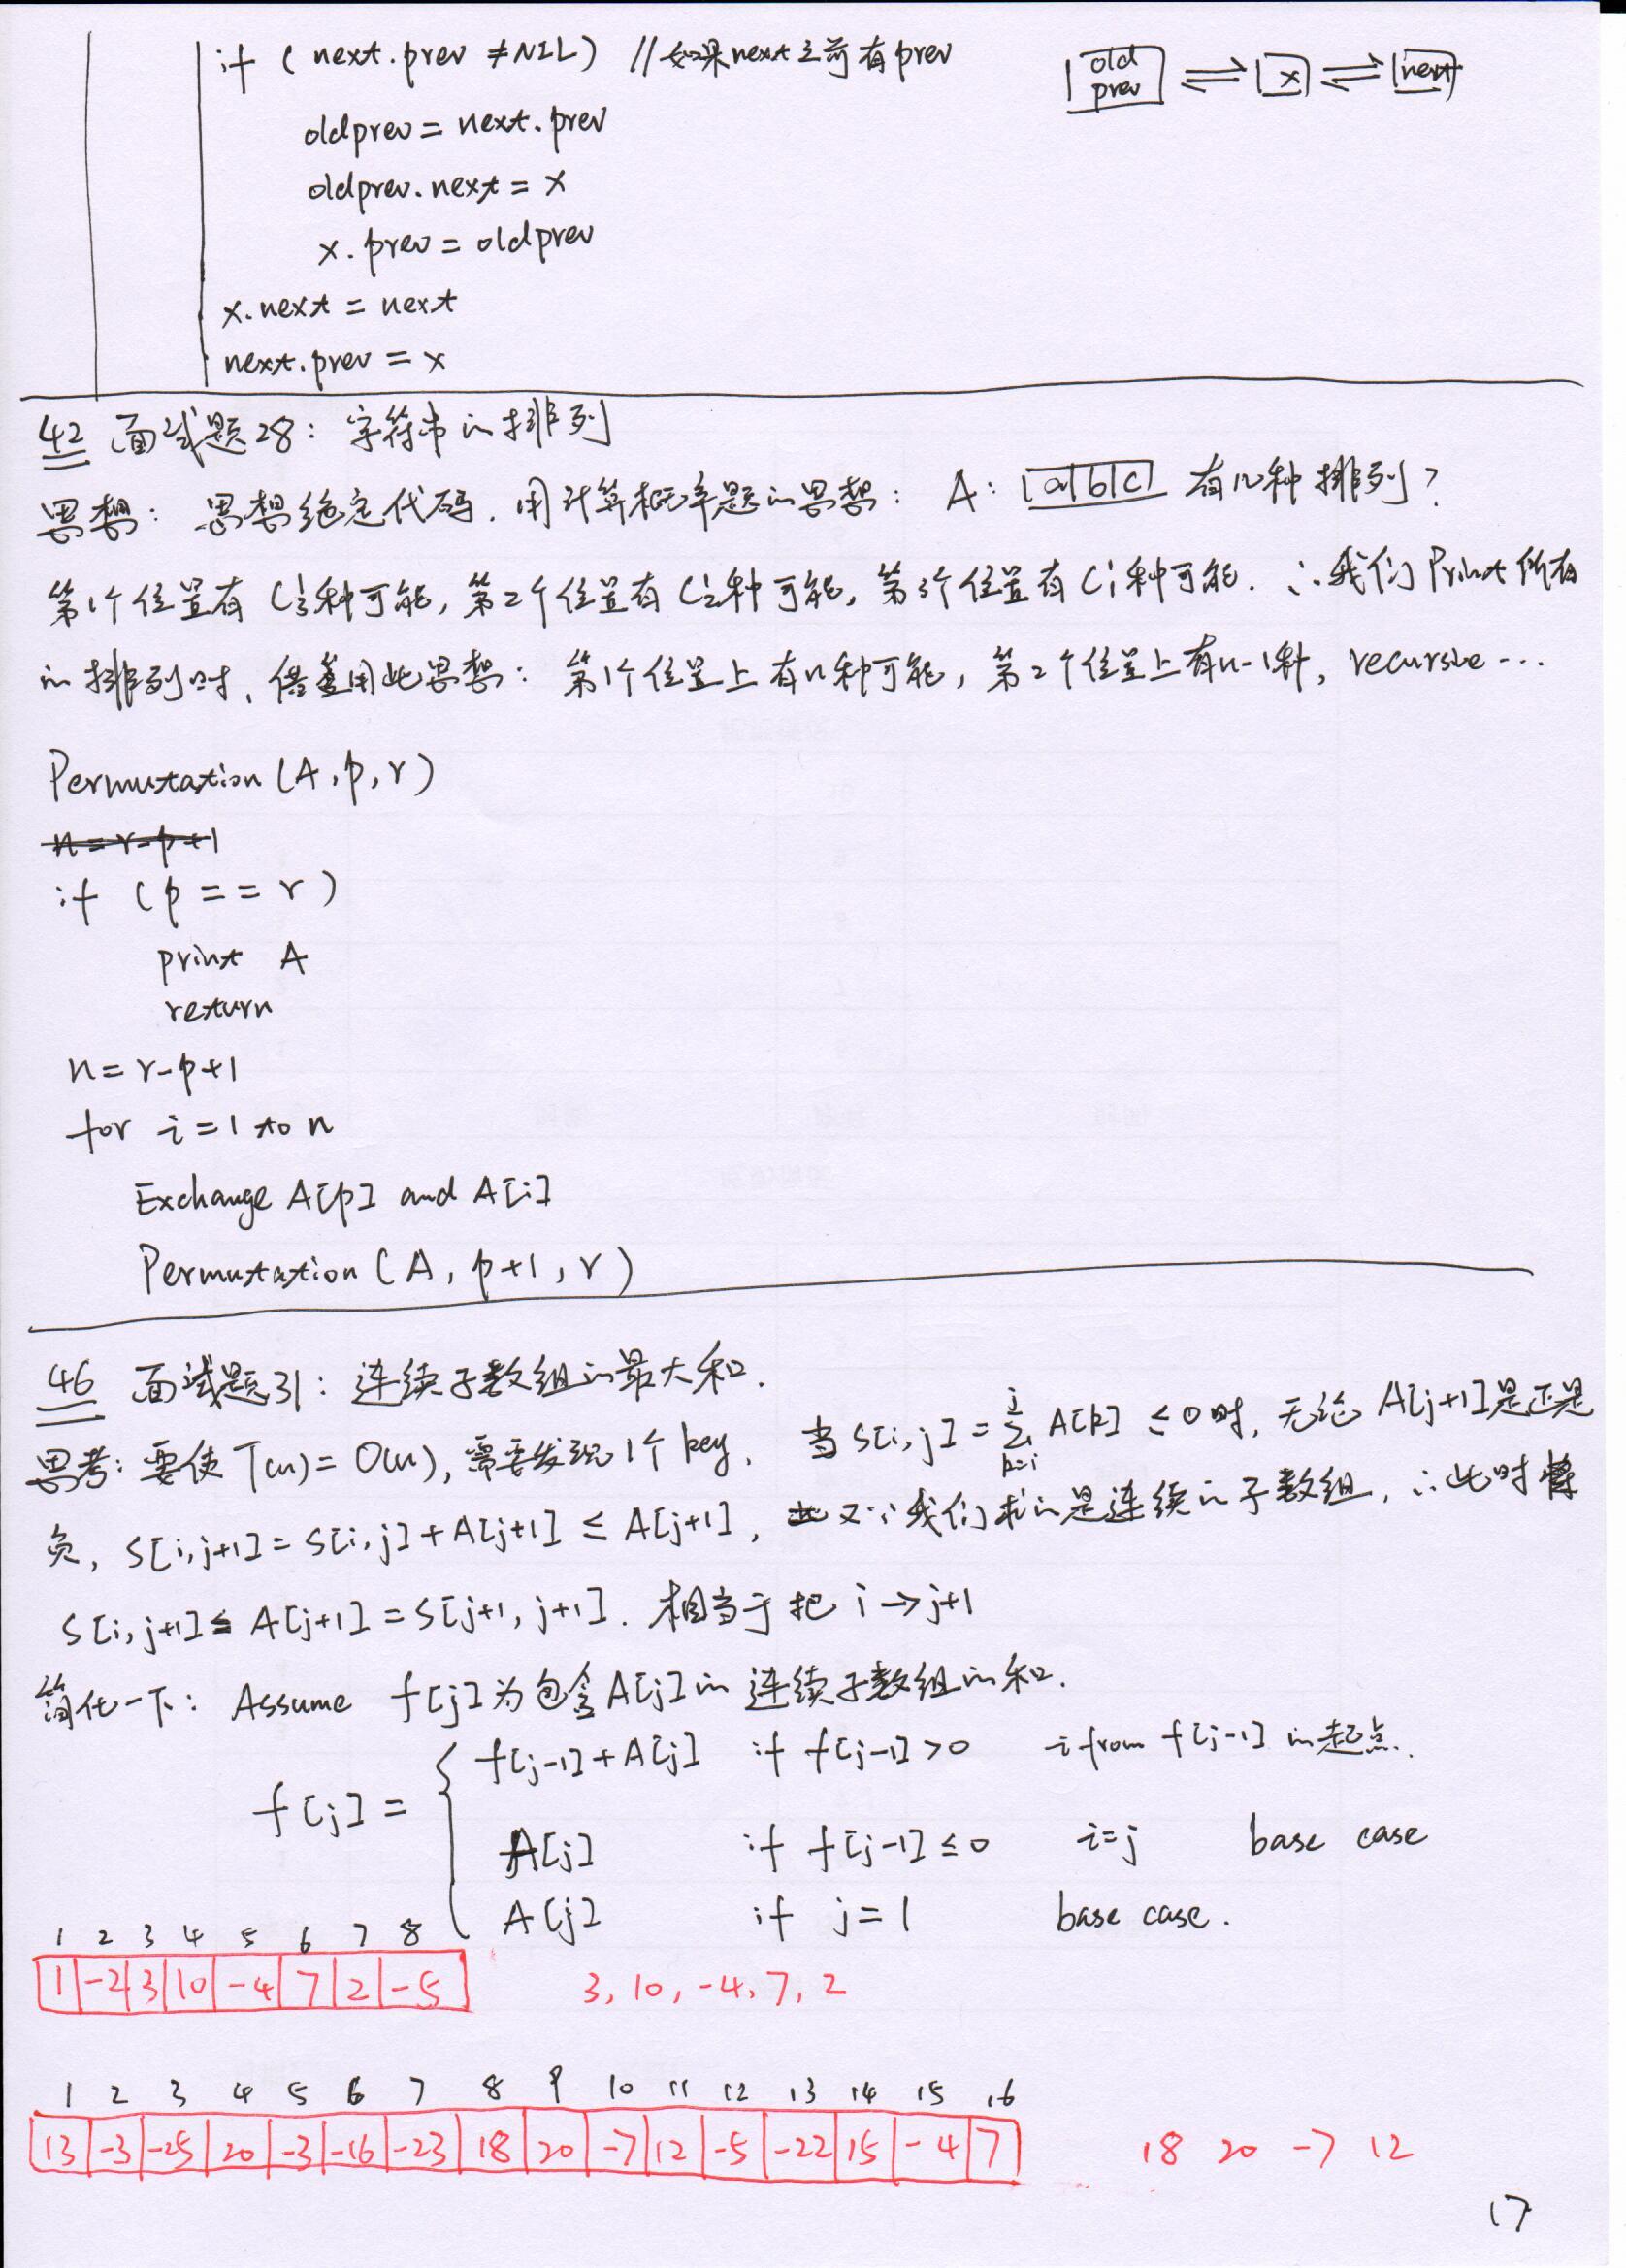 if ( next.prev ≠ NIL ) // 如果next之前有prev
old prev ⇌ x ⇌ next
oldprev = next.prev
oldprev.next = x
x.prev = oldprev
x.next = next
next.prev = x
42 面试题28: 字符串的排列
思想: 思想绝定代码. 用计算概率题的思想: A: |a|b|c| 有几种排列?
第1个位置有C₃¹种可能, 第2个位置有C₂¹种可能, 第3个位置有C₁¹种可能. ∴我们Print所有
的排列时, 借用此思想: 第1个位置上有n种可能, 第2个位置上有n-1种, recursive ...
Permutation (A, p, r)
n = r-p+1
if (p == r)
print A
return
n = r-p+1
for i = 1 to n
Exchange A[p] and A[i]
Permutation (A, p+1, r)
46 面试题31: 连续子数组的最大和.
思考: 要使 T(n) = O(n), 需要发现1个key, 当 S[i,j] = ∑_{k=i}^{j} A[k] ≤ 0时, 无论 A[j+1]是正是
负, S[i,j+1] = S[i,j] + A[j+1] ≤ A[j+1], 又∵我们求的是连续的子数组, ∴此时
S[i,j+1] ≤ A[j+1] = S[j+1, j+1]. 相当于把 i → j+1
简化一下: Assume f[j]为包含A[j]的连续子数组的和.
f[j-1] + A[j] if f[j-1] > 0 i from f[j-1] 的起点.
f[j] = {
A[j] if f[j-1] ≤ 0 i=j base case
A[j] if j = 1 base case.
1 2 3 4 5 6 7 8
1 -2 3 10 -4 7 2 -5 3, 10, -4, 7, 2
1 2 3 4 5 6 7 8 9 10 11 12 13 14 15 16
13 -3 -25 20 -3 -16 -23 18 20 -7 12 -5 -22 15 -4 7 18 20 -7 12
17